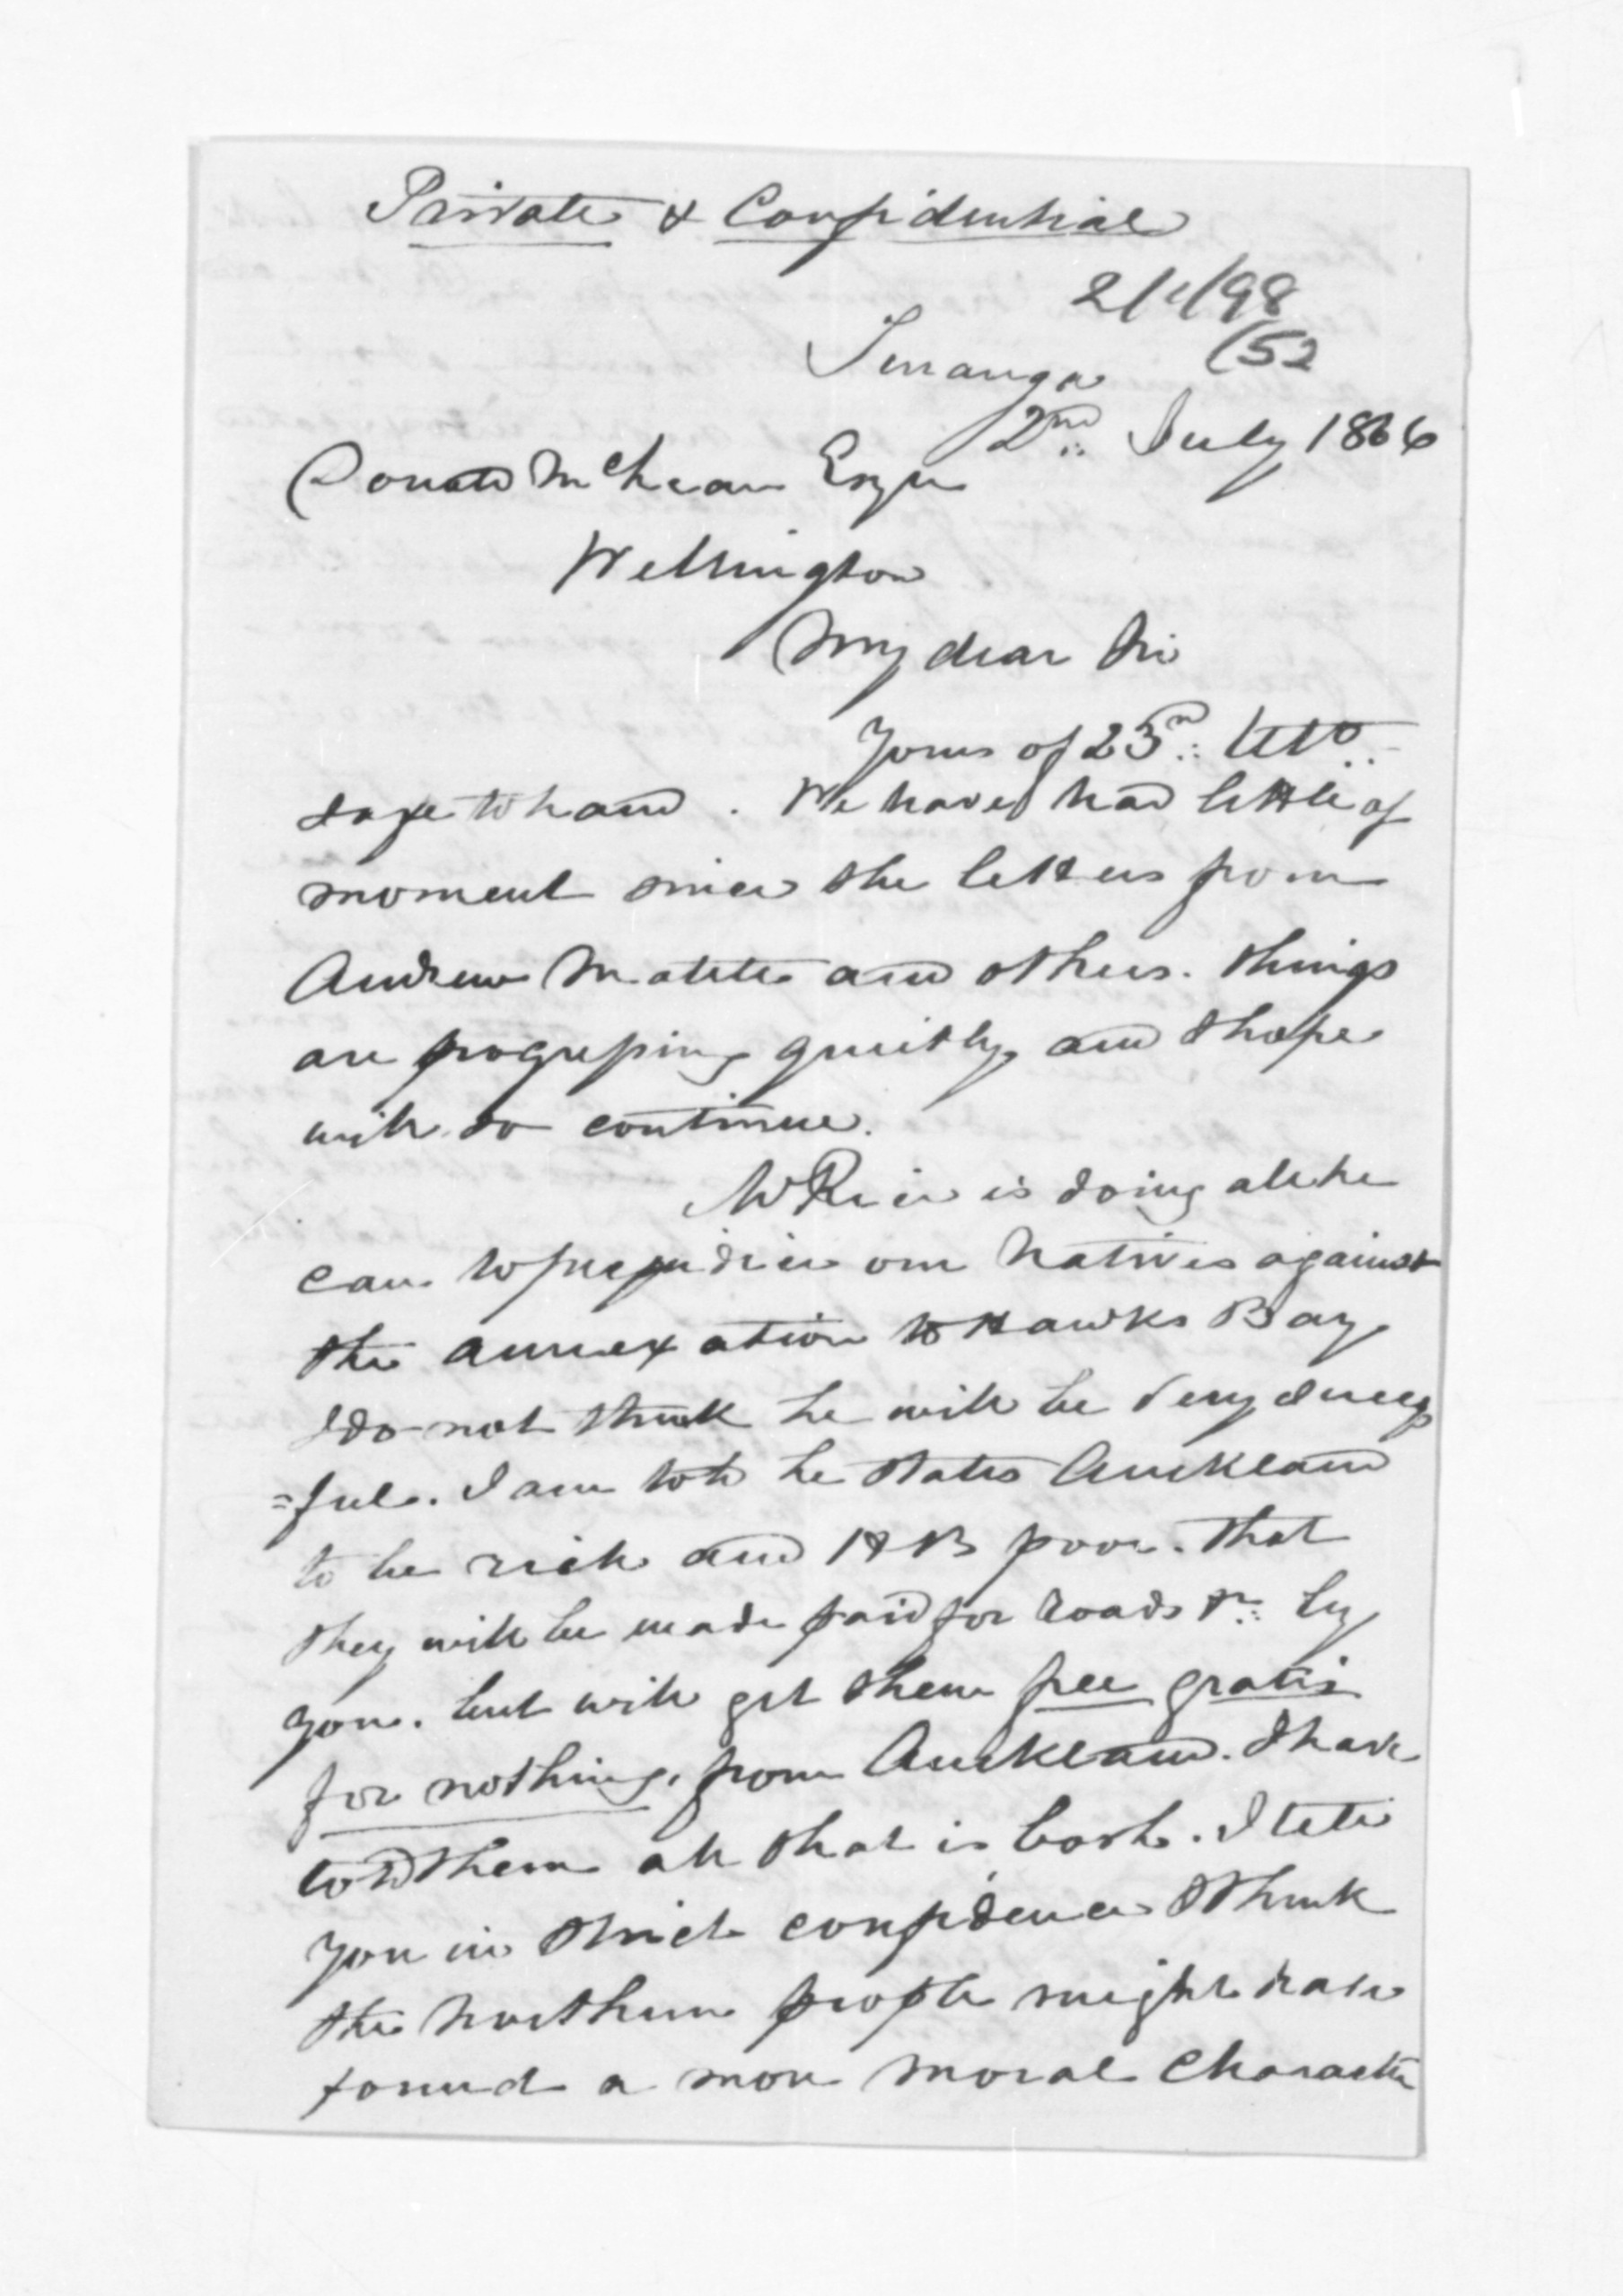 Private & Confidential
2/1/98
(52
Turanga
2nd July 1866
Donald McLean Esqre
Wellington
My dear Sir
Yours of 23rd Ulto
safe to hand. We have had little of
moment since the letters from
Andrew Matete and others. Things
are progressing quietly and I hope
will so continue.
W Read is doing all he
can to prejudice our Natives against
the annexation to Hawks Bay
I do not think he will be very success
=ful. I am told he states Auckland
to be rich and HB poor. That
they will be made paid for roads &c by
you. but will get them free gratis
for nothing, from Auckland. I have
told them all that is bosh. I tell
you in strict confidence I think
the Northern people might have
found a more moral character